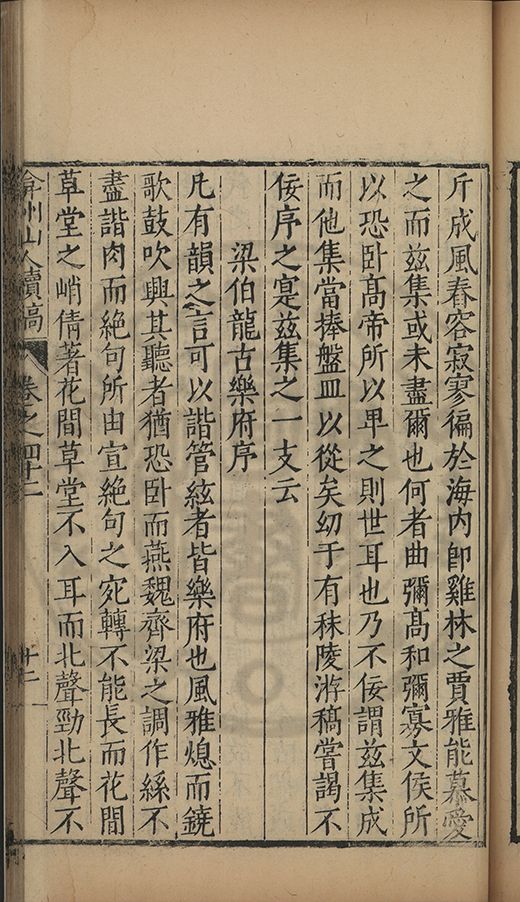 斤成風舂容寂寥徧於海內卽雞林之賈雅能慕愛
之而茲集或未盡爾也何者曲彌髙和彌寡文侯所
以恐卧髙帝所以卑之則世耳也乃不佞謂茲集成
而他集當捧盤皿以從矣幼于有秣陵游稿嘗謁不
佞序之寔茲集之一支云
梁伯龍古樂府序
凡有韻之言可以諧管絃者皆樂府也風雅熄而鐃
歌鼓吹興其聽者猶恐卧而燕魏齊梁之調作絲不
盡諧肉而絕句所由宣絕句之宛轉不能長而花間
草堂之峭倩著花間草堂不入耳而北聲勁北聲不
弇州山人續稿 卷之四十二 十二